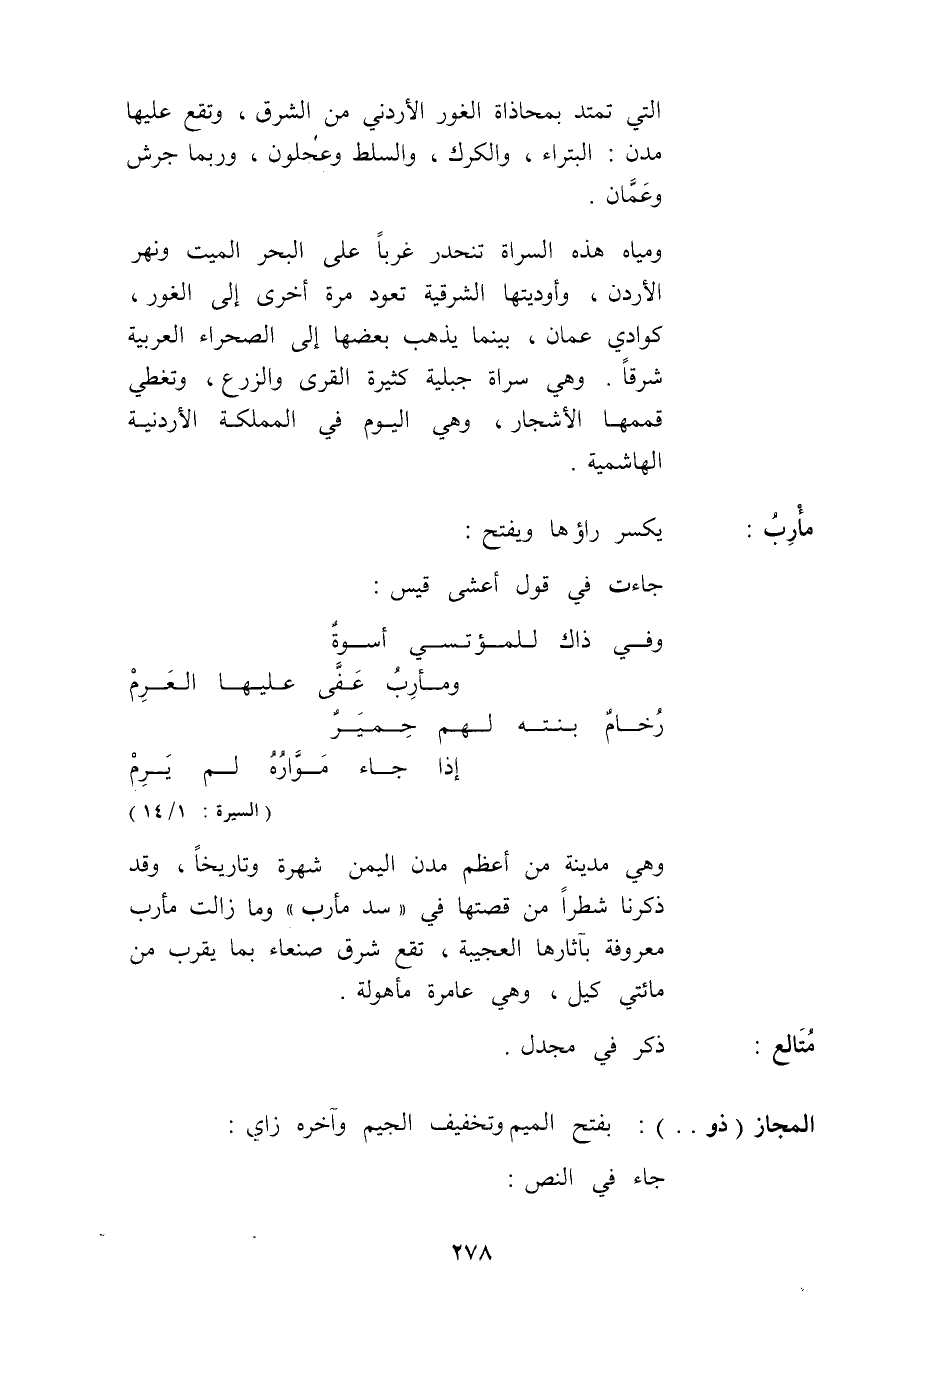 التي تمتد بمحاذاة الغور الأردني من الشرق ، وتقع عليها
مدن : البتراء ، والكرك ، والسلط وعجلون ، وربما جرش
وعَمَّان .
ومياه هذه السراة تنحدر غرباً على البحر الميت ونهر
الأردن ، وأوديتها الشرقية تعود مرة أخرى إلى الغور ،
كوادي عمان ، بينما يذهب بعضها إلى الصحراء العربية
شرقاً . وهي سراة جبلية كثيرة القرى والزرع ، وتغطي
قممها الأشجار ، وهي اليوم في المملكة الأردنية
الهاشمية .
مأْرِبُ : يكسر راؤها ويفتح :
جاءت في قول أعشى قيس :
وفي ذاك للمؤتسي أسوةٌ
ومأربُ عَفَّى عليها العَرِمْ
رُخامٌ بنته لهم حِميَرٌ
إذا جاء مَوَّارُهُ لم يَرِمْ
( السيرة : ١/ ١٤ )
وهي مدينة من أعظم مدن اليمن شهرة وتاريخاً ، وقد
ذكرنا شطراً من قصتها في « سد مأرب » وما زالت مأرب
معروفة بآثارها العجيبة ، تقع شرق صنعاء بما يقرب من
مائتي كيل ، وهي عامرة مأهولة .
مُتَالع : ذكر في مجدل .
المجاز ( ذو . . ) : بفتح الميم وتخفيف الجيم وآخره زاي :
جاء في النص :
٢٧٨